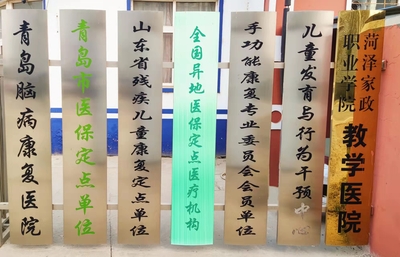 青岛脑病康复医院
青岛市医保定点单位
山东省残疾儿童康复定点单位
全国异地医保定点医疗机构
手功能康复专业委员会会员单位
儿童发育与行为干预中心
菏泽家政
职业学院
教学医院